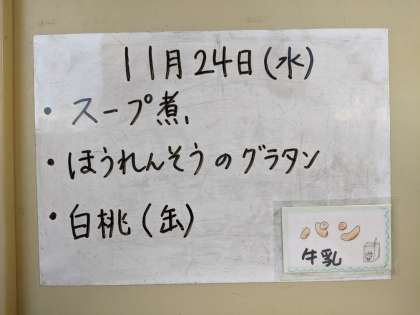 11月24日(水)
・スープ煮
・ほうれんそうのグラタン
・白桃(缶)
パン
牛乳